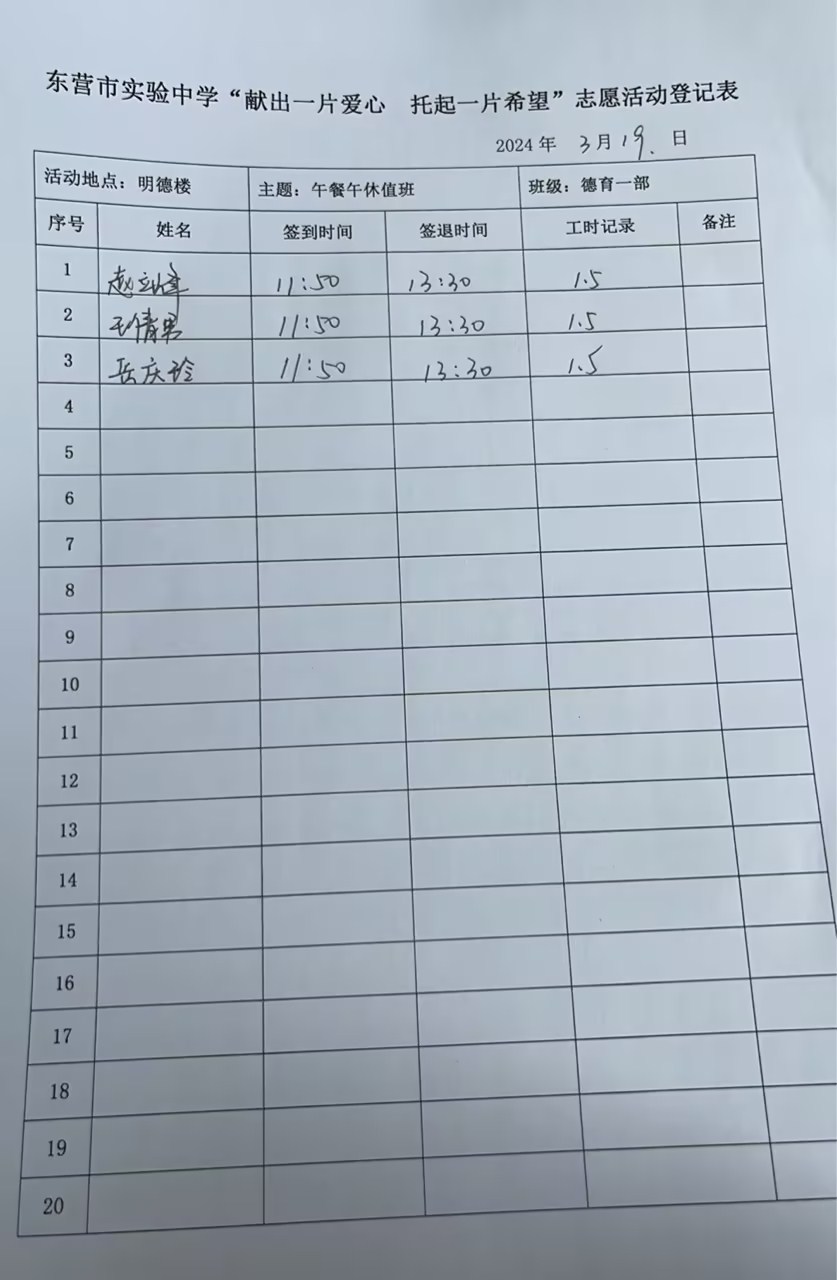 东营市实验中学“献出一片爱心 托起一片希望”志愿活动登记表
2024 年 3 月 19. 日
活动地点：明德楼 主题：午餐午休值班 班级：德育一部
序号 姓名 签到时间 签退时间 工时记录 备注
1 赵 11:50 13:30 1.5
2 11:50 13:30 1.5
3 岳庆玲 11:50 13:30 1.5
4
5
6
7
8
9
10
11
12
13
14
15
16
17
18
19
20